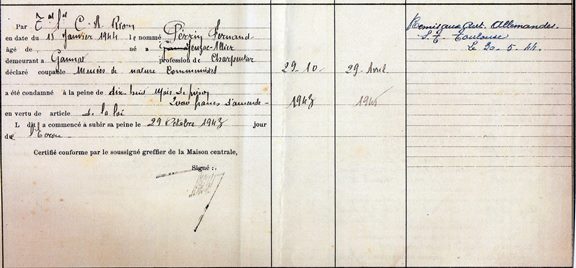 Par T^al f^al C. A. Riom
en date du 13 Janvier 1944 le nommé Perrin Fernand
âgé de né à Jenzac-Allier
demeurant à Gannat profession de Charpentier
déclaré coupable Menées de nature Communiste
a été condamné à la peine de dix huit Mois de prison
2000 francs d'amende
en vertu de article de la loi
L dit a commencé à subir sa peine le 29 Octobre 1943 jour
d'écrou
Certifié conforme par le soussigné greffier de la Maison centrale,
Signé :
29.10
1943
29 Avril
1945
Remis aux Aut. Allemandes
Toulouse
Le 30.5.44.